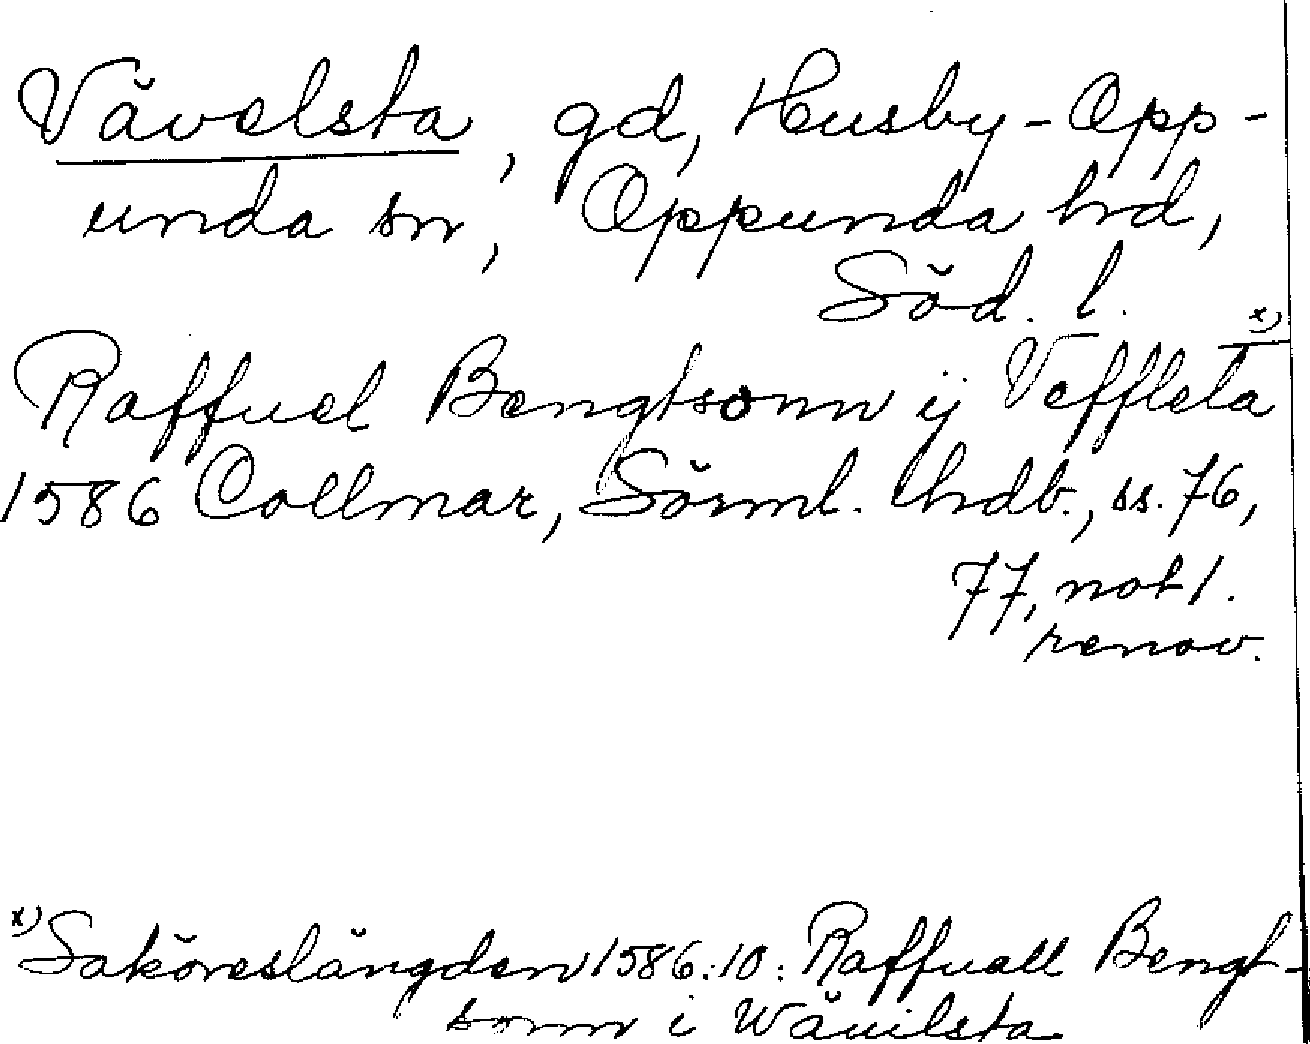 Vävelsta, gd, Husby-Opp-
unda sn, Oppunda hd,
Söd. l.
Raffuel Bengtsonn ij Veffleta x)
1586 Collmar, Sörml. hdb., ss. 76,
77, not 1.
renov.
x) Saköreslängden 1586:10: Raffuall Bengt-
sonn i Wäuilsta